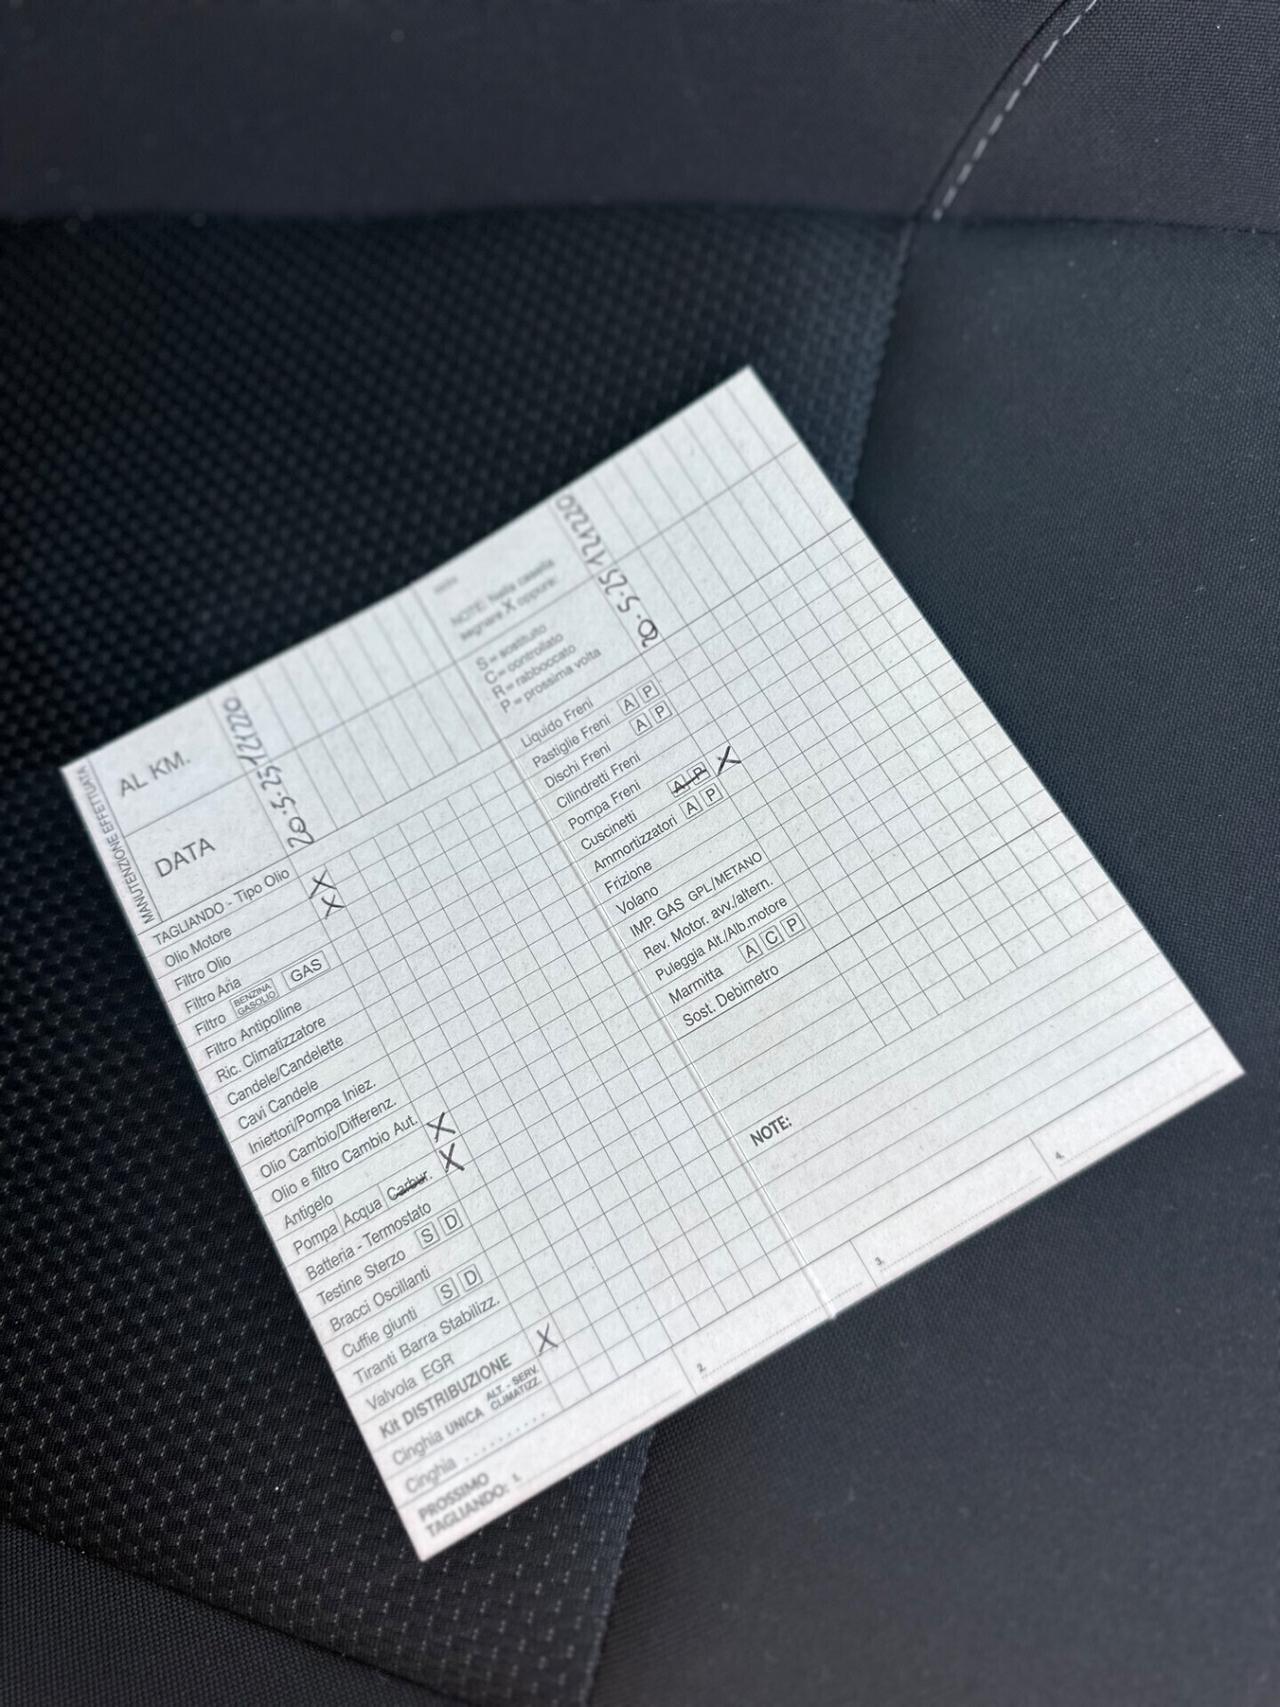 MANUTENZIONE EFFETTUATA
AL KM. 121220
DATA 20.5.25
TAGLIANDO - Tipo Olio
Olio Motore X
Filtro Olio X
Filtro Aria
Filtro BENZINA GASOLIO GAS
Filtro Antipolline
Ric. Climatizzatore
Candele/Candelette
Cavi Candele
Iniettori/Pompa Iniez.
Olio Cambio/Differenz.
Olio e filtro Cambio Aut.
Antigelo X
Pompa Acqua Carbur. X
Batteria - Termostato
Testine Sterzo S D
Bracci Oscillanti
Cuffie giunti S D
Tiranti Barra Stabilizz.
Valvola EGR
Kit DISTRIBUZIONE X
Cinghia UNICA ALT. - SERV. CLIMATIZZ.
Cinghia ..........
PROSSIMO TAGLIANDO: 1.
2.
3.
4.
NOTE: Nella casella
segnare X oppure:
S = sostituito
C = controllato
R = rabboccato
P = prossima volta
121220
20.5.25
Liquido Freni
Pastiglie Freni A P
Dischi Freni A P
Cilindretti Freni
Pompa Freni
Cuscinetti A P X
Ammortizzatori A P
Frizione
Volano
IMP. GAS GPL/METANO
Rev. Motor. avv./altern.
Puleggia Alt./Alb.motore
Marmitta A C P
Sost. Debimetro
NOTE: